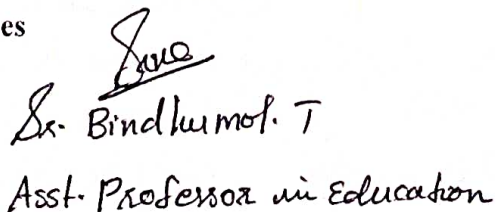 es
Sr. Bindhumol. T
Asst. Professor in Education